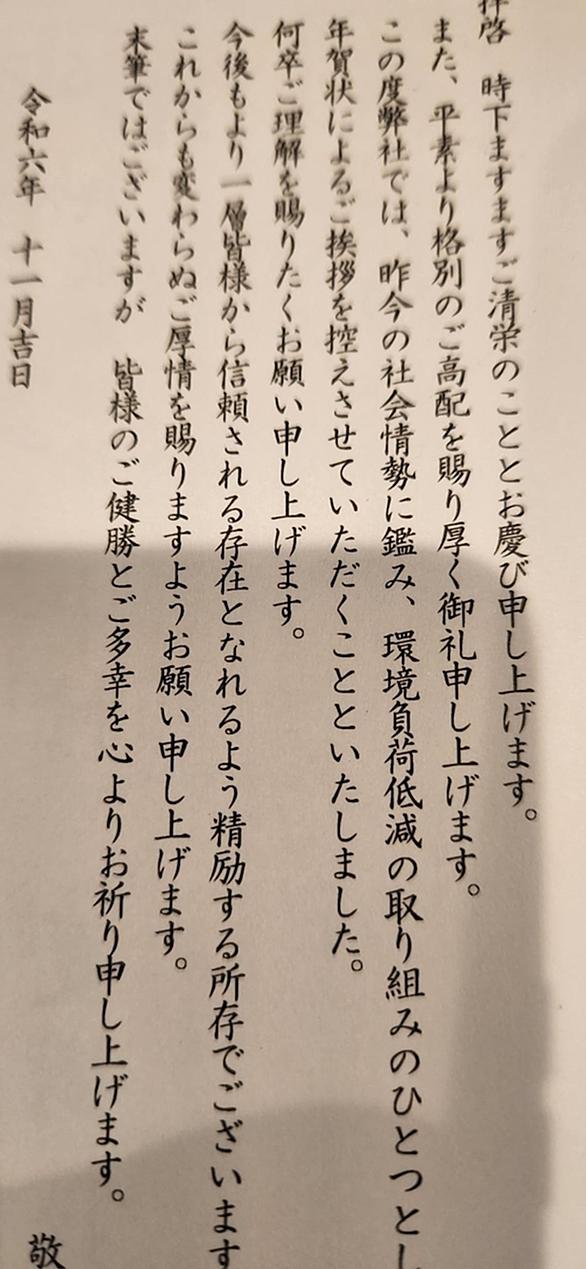 拝啓　時下ますますご清栄のこととお慶び申し上げます。
また、平素より格別のご高配を賜り厚く御礼申し上げます。
この度弊社では、昨今の社会情勢に鑑み、環境負荷低減の取り組みのひとつとし
年賀状によるご挨拶を控えさせていただくことといたしました。
何卒ご理解を賜りたくお願い申し上げます。
今後もより一層皆様から信頼される存在となれるよう精励する所存でございます
これからも変わらぬご厚情を賜りますようお願い申し上げます。
末筆ではございますが　皆様のご健勝とご多幸を心よりお祈り申し上げます。
敬
令和六年　十一月吉日